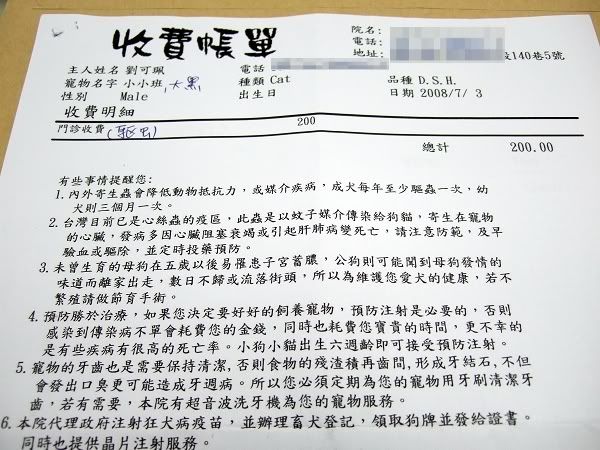 收費帳單
院名:
電話:
地址: 140巷5號
主人姓名 劉可珮 電話
寵物名字 小小班,大黑 種類 Cat 品種 D.S.H.
性別 Male 出生日 日期 2008/7/ 3
收費明細
門診收費 (驅虫) 200
總計 200.00
有些事情提醒您:
1.內外寄生蟲會降低動物抵抗力，或媒介疾病，成犬每年至少驅蟲一次，幼
犬則三個月一次。
2.台灣目前已是心絲蟲的疫區，此蟲是以蚊子媒介傳染給狗貓，寄生在寵物
的心臟，發病多因心臟阻塞衰竭或引起肝肺病變死亡，請注意防範，及早
驗血或驅除，並定時投藥預防。
3.未曾生育的母狗在五歲以後易罹患子宮蓄膿，公狗則可能聞到母狗發情的
味道而離家出走，數日不歸或流落街頭，所以為維護您愛犬的健康，若不
繁殖請做節育手術。
4.預防勝於治療，如果您決定要好好的飼養寵物，預防注射是必要的，否則
感染到傳染病不單會耗費您的金錢，同時也耗費您寶貴的時間，更不幸的
是有些疾病有很高的死亡率。小狗小貓出生六週齡即可接受預防注射。
5.寵物的牙齒也是需要保持清潔,否則食物的殘渣積再齒間,形成牙結石,不但
會發出口臭更可能造成牙週病。所以您必須定期為您的寵物用牙刷清潔牙
齒，若有需要，本院有超音波洗牙機為您的寵物服務。
6.本院代理政府注射狂犬病疫苗，並辦理畜犬登記，領取狗牌並發給證書。
同時也提供晶片注射服務。